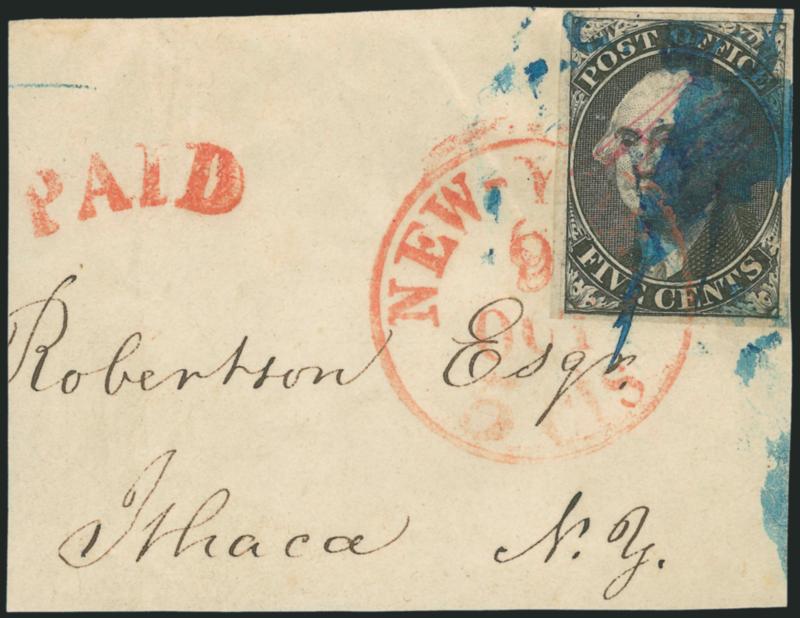 POST OFFICE
FIVE CENTS
PAID
NEW-Y
9
OCT
CTS
Robertson Esqr.
Ithaca N.Y.